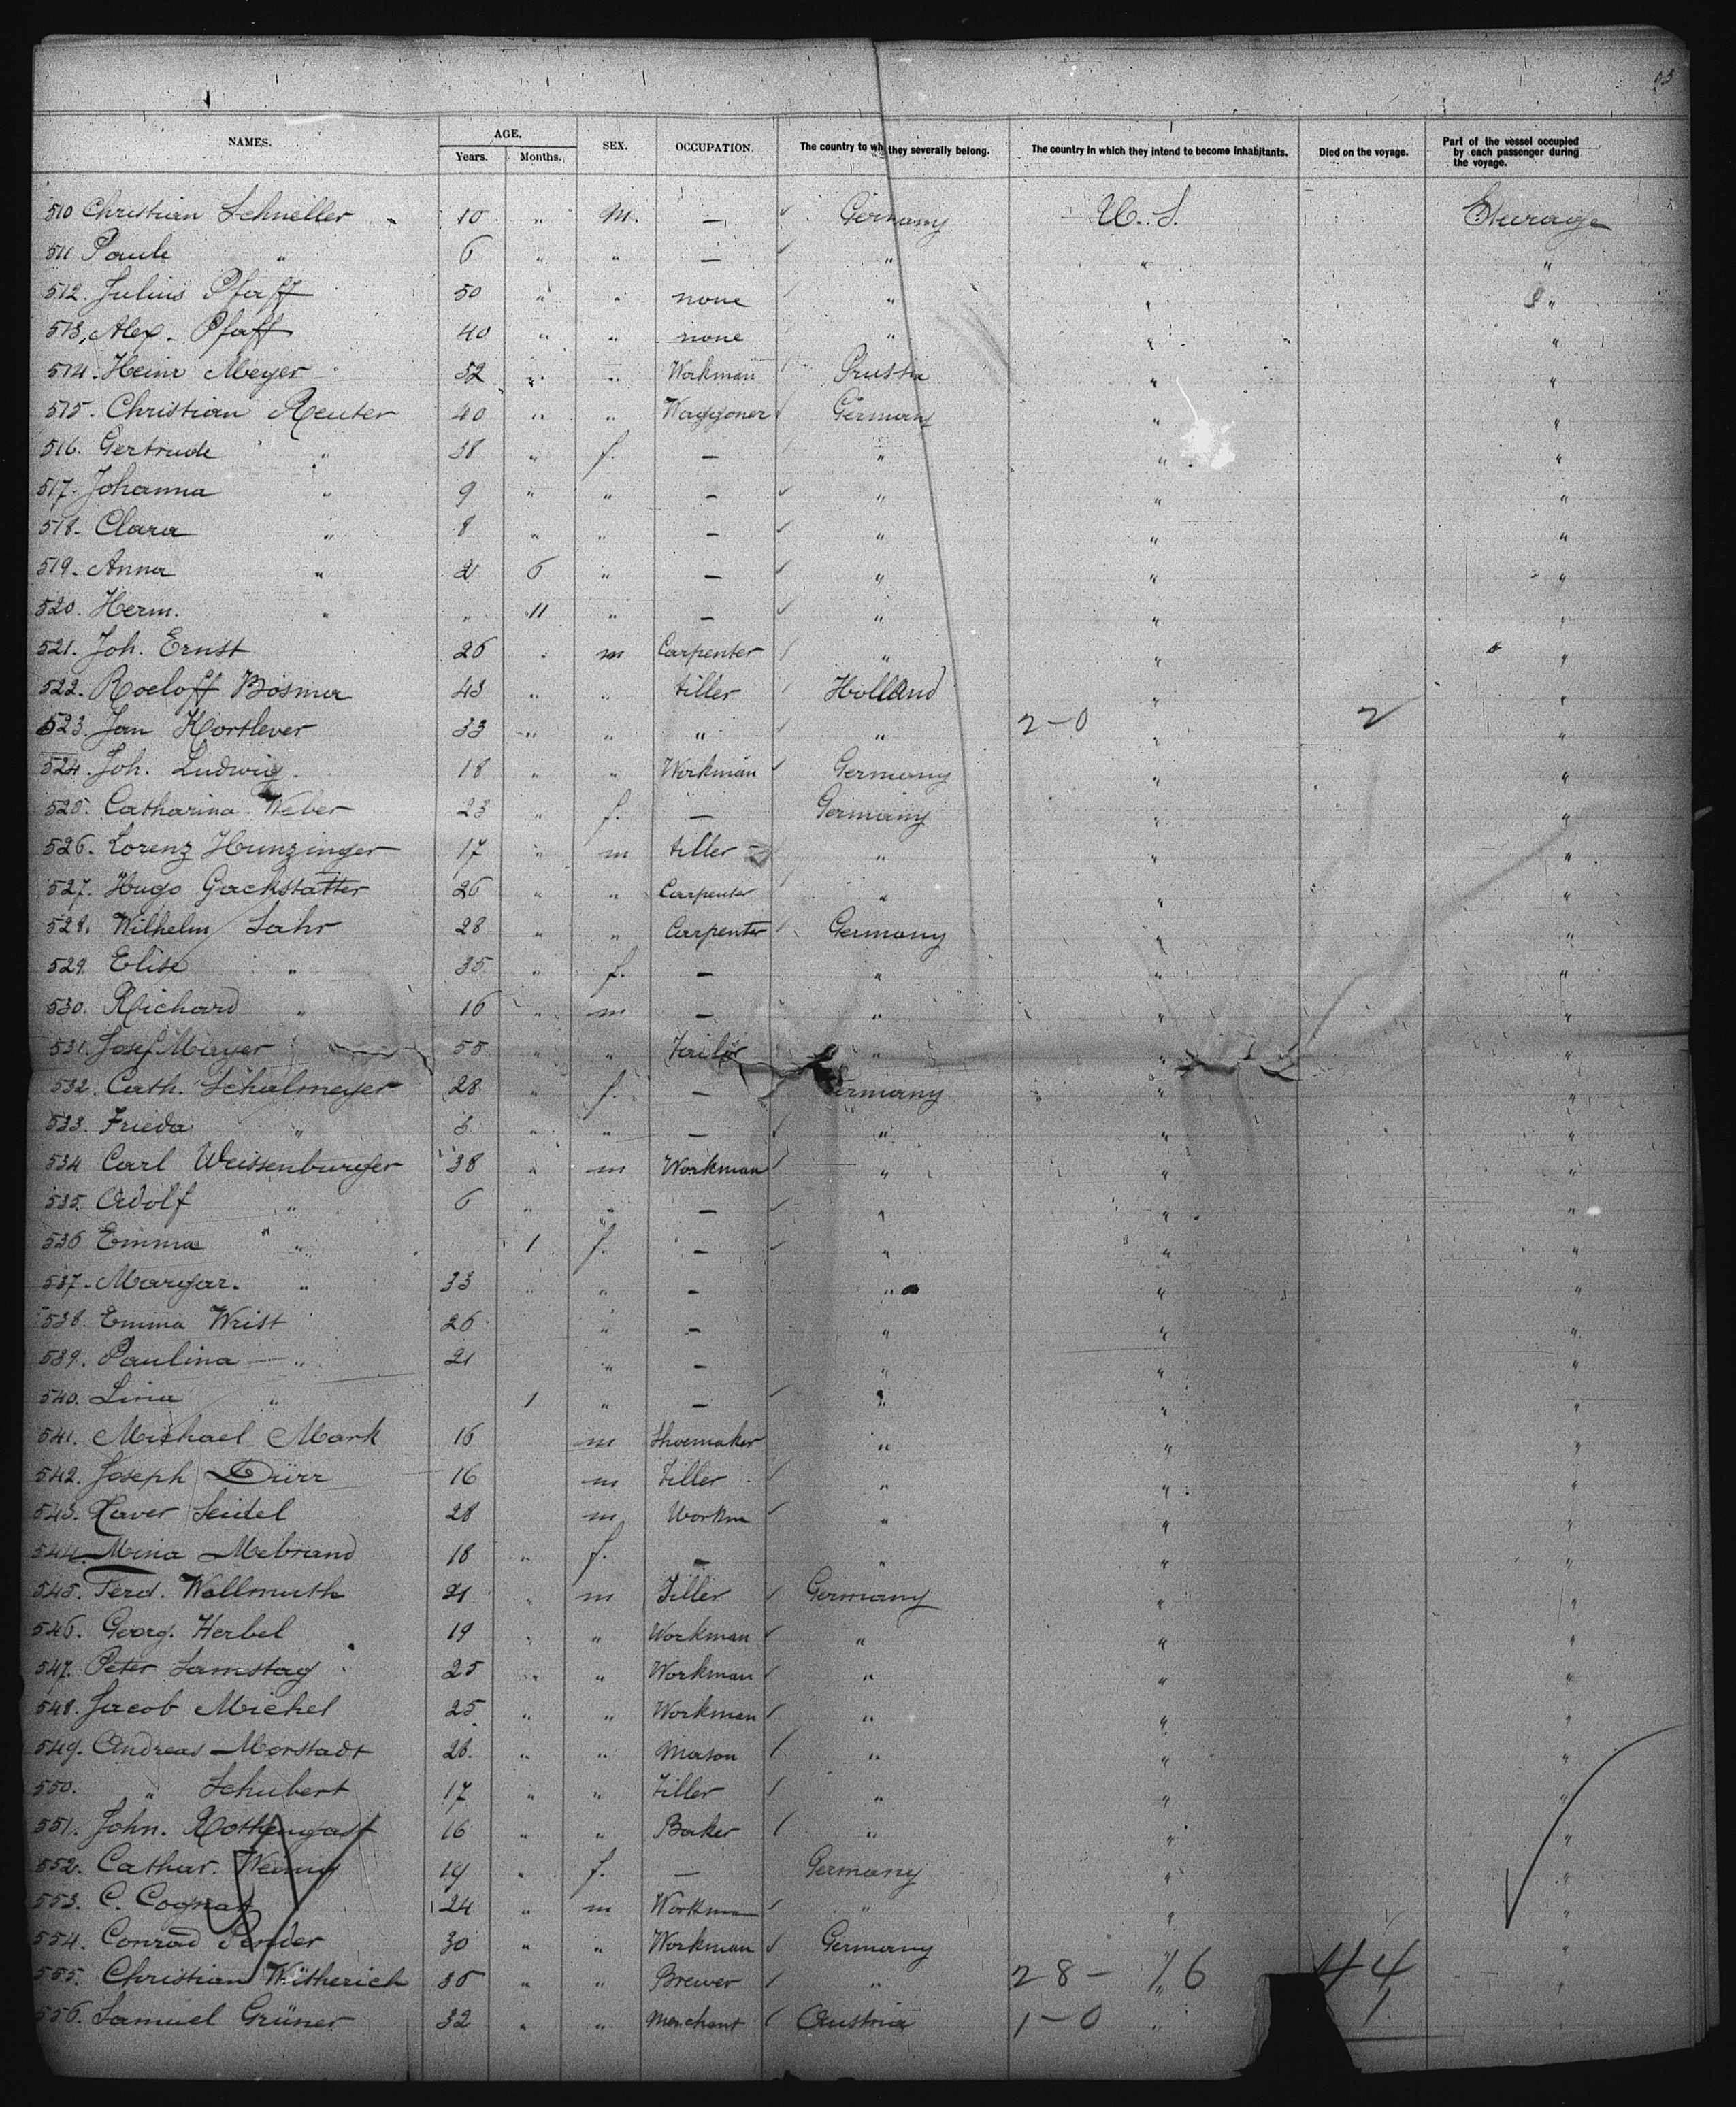 03
NAMES. AGE. SEX. OCCUPATION. The country to wh they severally belong. The country in which they intend to become inhabitants. Died on the voyage. Part of the vessel occupied by each passenger during the voyage.
Years. Months.
510 Christian Schneller 10 " m. — Germany U. S. Steerage
511 Paule " 6 " " — " " "
512. Julius Pfaff 50 " " none " " "
513, Alex. Pfaff 40 " " none " " "
514. Heinr Meyer 52 " " Workman Prussia " "
515. Christian Reuter 40 " " Waggoner Germany " "
516. Gertrude " 38 " f. — " " "
517. Johanna " 9 " " — " " "
518. Clara " 8 " " — " " "
519. Anna " 2 6 " — " " "
520. Herm. " " 11 " — " " "
521. Joh. Ernst 26 " m Carpenter " " "
522. Roeloff Bosma 43 " " tiller Holland " "
523. Jan Kortlever 33 " " " " 2-0 " 2 "
524. Joh. Ludwig. 18 " " Workman Germany " "
525. Catharina Weber 23 " f. — Germany " "
526. Lorenz Hunzinger 17 " m tiller " " "
527. Hugo Gackstätter 26 " " Carpenter " " "
528. Wilhelm Sahr 28 " " Carpenter Germany " "
529. Elise " 35 " f. — " " "
530. Richard " 16 " m — " " "
531. Josef Mayer 55 " " Tailor " " "
532. Cath. Schalmeyer 28 " f. — Germany " "
533. Frieda " 5 " " — " " "
534 Carl Weissenburger 38 " m Workman " " "
535. Adolf " 6 " " — " " "
536 Emma " 1 f. — " " "
537. Margar. " 33 " " — " " "
538. Emma Wrist 26 " — " " "
539. Paulina — " 21 " — " " "
540. Lina " 1 " — " " "
541. Michael Mark 16 m Shoemaker " " "
542. Joseph Dürr 16 m Tiller " " "
543. Xaver Seidel 28 m Workm " " "
544. Mina Mebrand 18 " f. — " " "
545. Ferd. Wollmuth 21 " m Tiller Germany " "
546. Georg. Herbel 19 " " Workman " " "
547. Peter Samstag 25 " " Workman " " "
548. Jacob Michel 25 " " Workman " " "
549. Andreas Morstadt 26. " " Mason " " "
550. " Schubert 17 " " Tiller " " "
551. John. Rothengast 16 " " Baker " " "
552. Cathar. 19 " f. — Germany " "
553. C. Cognat 24 " m Workman " " "
554. Conrad 30 " " Workman Germany " "
555. Christian Witherich 36 " " Brewer " 28- 16 44 "
556. Samuel Grüner 32 " " Merchant Austria 1-0 " 1 "